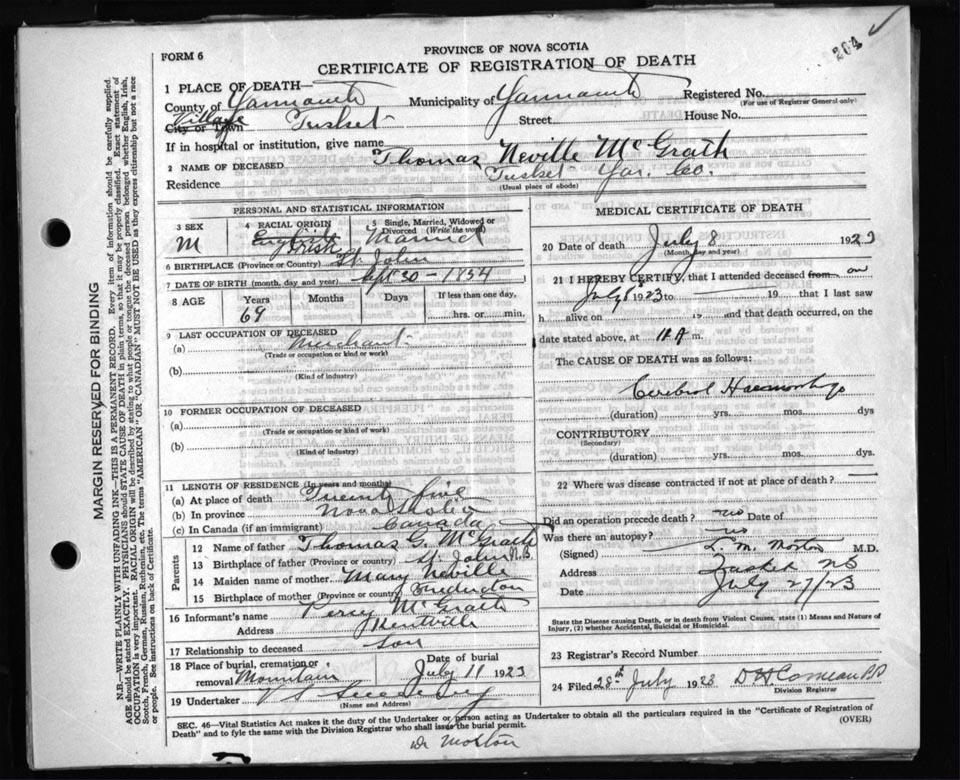 204
FORM 6
PROVINCE OF NOVA SCOTIA
CERTIFICATE OF REGISTRATION OF DEATH
1 PLACE OF DEATH—
County of Yarmouth Municipality of Yarmouth Registered No.
(For use of Registrar General only)
Village
City or Town Tusket Street House No.
If in hospital or institution, give name
2 NAME OF DECEASED Thomas Neville McGrath
Residence Tusket Yar. Co.
(Usual place of abode)
PERSONAL AND STATISTICAL INFORMATION
3 SEX M
4 RACIAL ORIGIN English Irish
5 Single, Married, Widowed or Divorced (Write the word) Married
6 BIRTHPLACE (Province or Country) St. John
7 DATE OF BIRTH (month, day and year) Sept 30 - 1854
8 AGE Years 69 Months Days If less than one day, hrs. or min.
9 LAST OCCUPATION OF DECEASED
(a) Merchant
(Trade or occupation or kind or work)
(b)
(Kind of industry)
10 FORMER OCCUPATION OF DECEASED
(a)
(Trade or occupation or kind or work)
(b)
(Kind of industry)
11 LENGTH OF RESIDENCE (in Years and months)
(a) At place of death Twenty five
(b) In province Nova Scotia
(c) In Canada (if an immigrant) Canada
Parents
12 Name of father Thomas G. McGrath
13 Birthplace of father (Province or country) St. John N.B.
14 Maiden name of mother Mary Neville
15 Birthplace of mother (Province or country) Fredericton
16 Informant's name Percy McGrath
Address Kentville
17 Relationship to deceased Son
18 Place of burial, cremation or removal Mountain Date of burial July 11 1923
19 Undertaker
(Name and Address)
MEDICAL CERTIFICATE OF DEATH
20 Date of death July 8 1923
(Month, day and year)
21 I HEREBY CERTIFY, that I attended deceased from on
July 8 1923 to 19 that I last saw
h alive on 19 and that death occurred, on
date stated above, at 11 A m.
The CAUSE OF DEATH was as follows:
Cerebral Haemorrhage
(duration) yrs. mos. dys
CONTRIBUTORY
(Secondary)
(duration) yrs. mos. dys.
22 Where was disease contracted if not at place of death?
Did an operation precede death? no Date of
Was there an autopsy? no
(Signed) L. M. Morton M.D.
Address Tusket NS
July 27/23
State the Disease causing Death, or in death from Violent Causes, state (1) Means and Nature of Injury, (2) whether Accidental, Suicidal or Homicidal.
23 Registrar's Record Number
24 Filed 28th July 1923
Division Registrar
SEC. 46—Vital Statistics Act makes it the duty of the Undertaker or person acting as Undertaker to obtain all the particulars required in the "Certificate of Registration of
Death" and to fyle the same with the Division Registrar who shall issue the burial permit.
(OVER)
Dr Morton
MARGIN RESERVED FOR BINDING
N.B.—WRITE PLAINLY WITH UNFADING INK—THIS IS A PERMANENT RECORD. Every item of information should be carefully supplied.
AGE should be stated EXACTLY. PHYSICIANS should STATE CAUSE OF DEATH in plain terms, so that it may be properly classified. Exact statement of
OCCUPATION is very important. RACIAL ORIGIN will be described by stating to what people or tongue the deceased person belonged whether English, Irish,
Scotch, French, German, Russian, Ruthenian, etc. The terms "AMERICAN" OR "CANADIAN" MUST NOT BE USED as they express citizenship but not a race
or people. See instructions on back of Certificate.